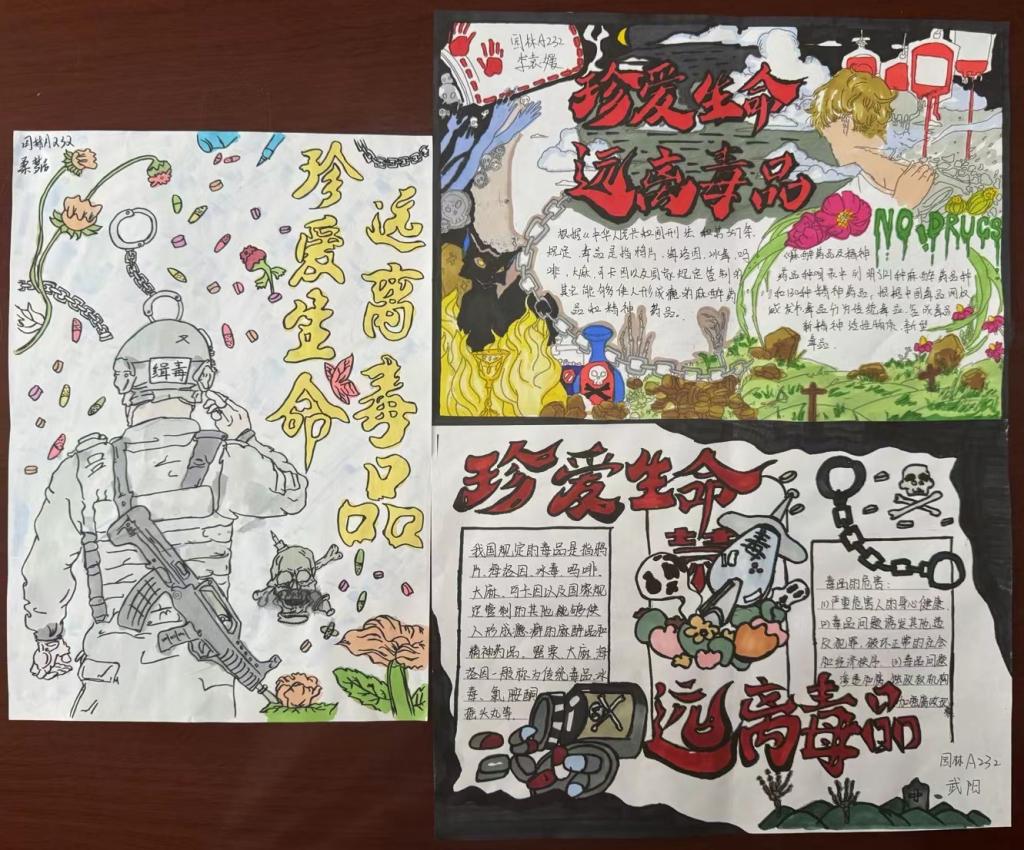 园林A232
远离毒品
珍爱生命
缉毒
园林A232
李袁媛
珍爱生命
远离毒品
NO DRUGS
根据《中华人民共和国刑法》第357条
规定,毒品是指鸦片、海洛因、冰毒、吗
啡、大麻、可卡因以及国家规定管制的
其它能够使人形成瘾癖的麻醉药
品和精神药品。
麻醉药品及精神
药品品种目录中列明121种麻醉药品种
和130种精神药品。根据中国毒品
新精神活性物质 新型
毒品。
珍爱生命
禁
毒品
我国规定的毒品是指鸦
片、海洛因、冰毒、吗啡、
大麻、可卡因以及国家规
定管制的其他能够使
人形成瘾癖的麻醉药品和
精神药品。罂粟、大麻、海
洛因一般称为传统毒品,冰
毒、氯胺酮、
摇头丸等
毒品的危害:
(1)严重危害人的身心健康。
(2)毒品问题诱发其他违
反犯罪,破坏正常的社会
和经济秩序。(3)毒品问题
渗透和腐蚀政权机构
加剧腐败
远离毒品
园林A232
武阳